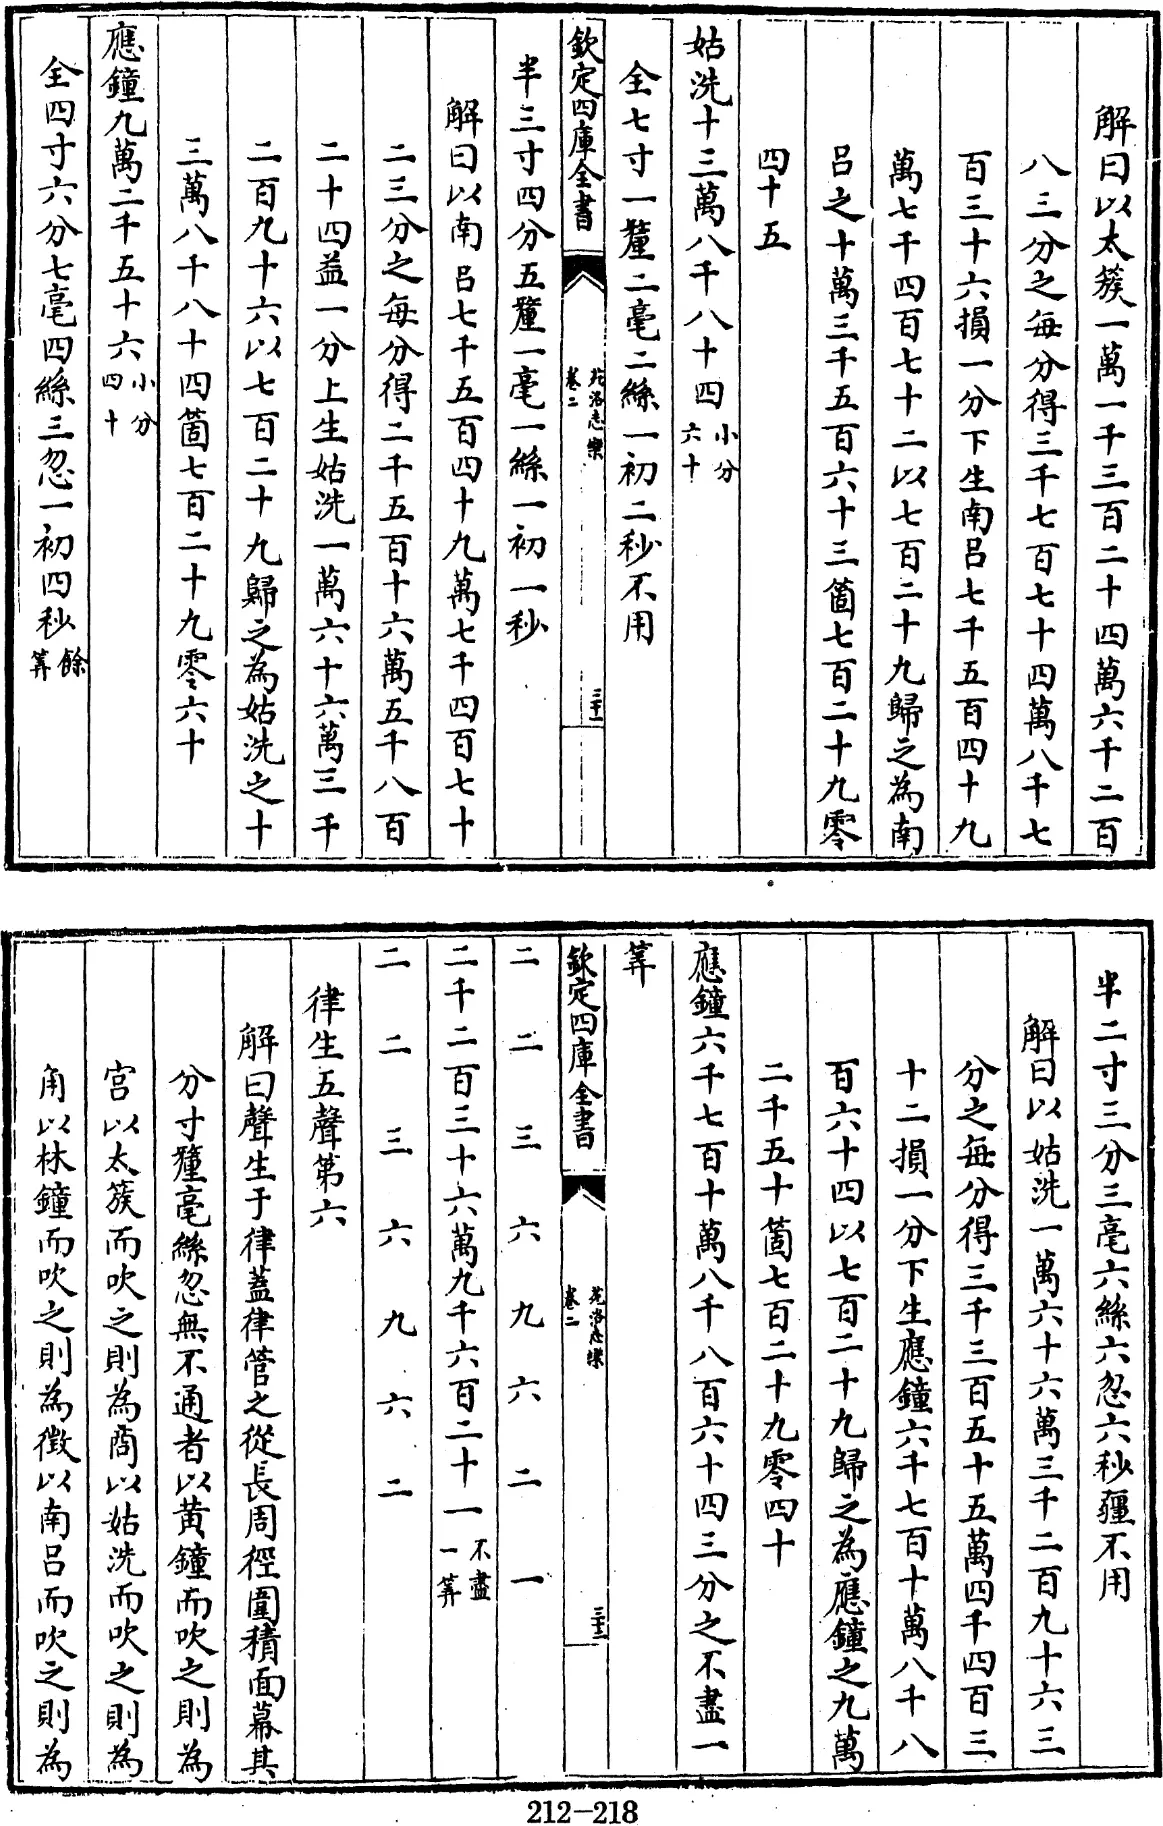 解曰以太簇一萬一千三百二十四萬六千二百
八三分之每分得三千七百七十四萬八千七
百三十六損一分下生南吕七千五百四十九
萬七千四百七十二以七百二十九歸之為南
吕之十萬三千五百六十三箇七百二十九零
四十五
姑洗十三萬八千八十四小分六十
全七寸一釐二毫二絲一初二秒不用
欽定四庫全書
苑洛志樂
卷二
三十一
半三寸四分五釐一毫一絲一初一秒
解曰以南吕七千五百四十九萬七千四百七十
二三分之每分得二千五百十六萬五千八百
二十四益一分上生姑洗一萬六十六萬三千
二百九十六以七百二十九歸之為姑洗之十
三萬八千八十四箇七百二十九零六十
應鐘九萬二千五十六小分四十
全四寸六分七毫四絲三忽一初四秒餘筭
半二寸三分三毫六絲六忽六秒疆不用
解曰以姑洗一萬六十六萬三千二百九十六三
分之每分得三千三百五十五萬四千四百三
十二損一分下生應鐘六千七百十萬八千八
百六十四以七百二十九歸之為應鐘之九萬
二千五十箇七百二十九零四十
應鐘六千七百十萬八千八百六十四三分之不盡一
筭
欽定四庫全書
苑洛志樂
卷二
三十二
二二三六九六二一
二千二百三十六萬九千六百二十一不盡一筭
二二三六九六二
律生五聲第六
解曰聲生于律蓋律管之從長周徑圍積面幕其
分寸釐毫絲忽無不通者以黄鐘而吹之則為
宫以太簇而吹之則為商以姑洗而吹之則為
角以林鐘而吹之則為徵以南吕而吹之則為
212-218